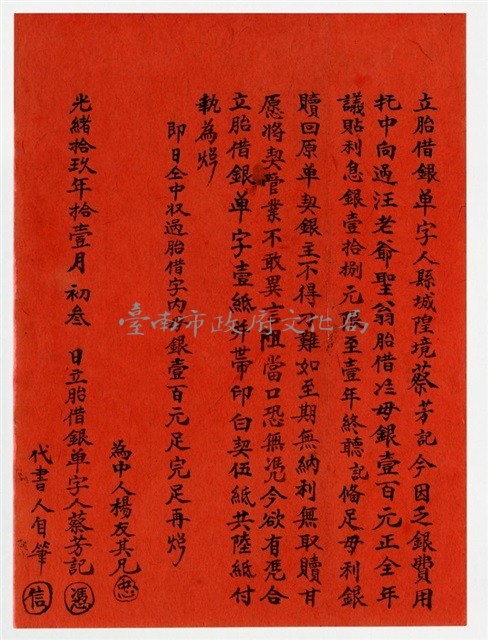 立胎借銀单字人縣城隍境蔡芳記今因乏銀費用
托中向過汪老爺聖翁胎借出母銀壹百元正全年
議貼利息銀壹拾捌元限至壹年終聽記俻足母利銀
贖回原单契銀主不得刁难如至期無納利無取贖甘
愿將契管業不敢異言阻當口恐無凭今欲有凭合
立胎借銀单字壹紙并帶印白契伍紙共陸紙付
執為炤
即日仝中収過胎借字内母銀壹百元足完足再炤
為中人楊友其兄 忠
光緒拾玖年拾壹月初叁日立胎借銀单字人蔡芳記 憑
代書人自筆 信
臺南市政府文化局